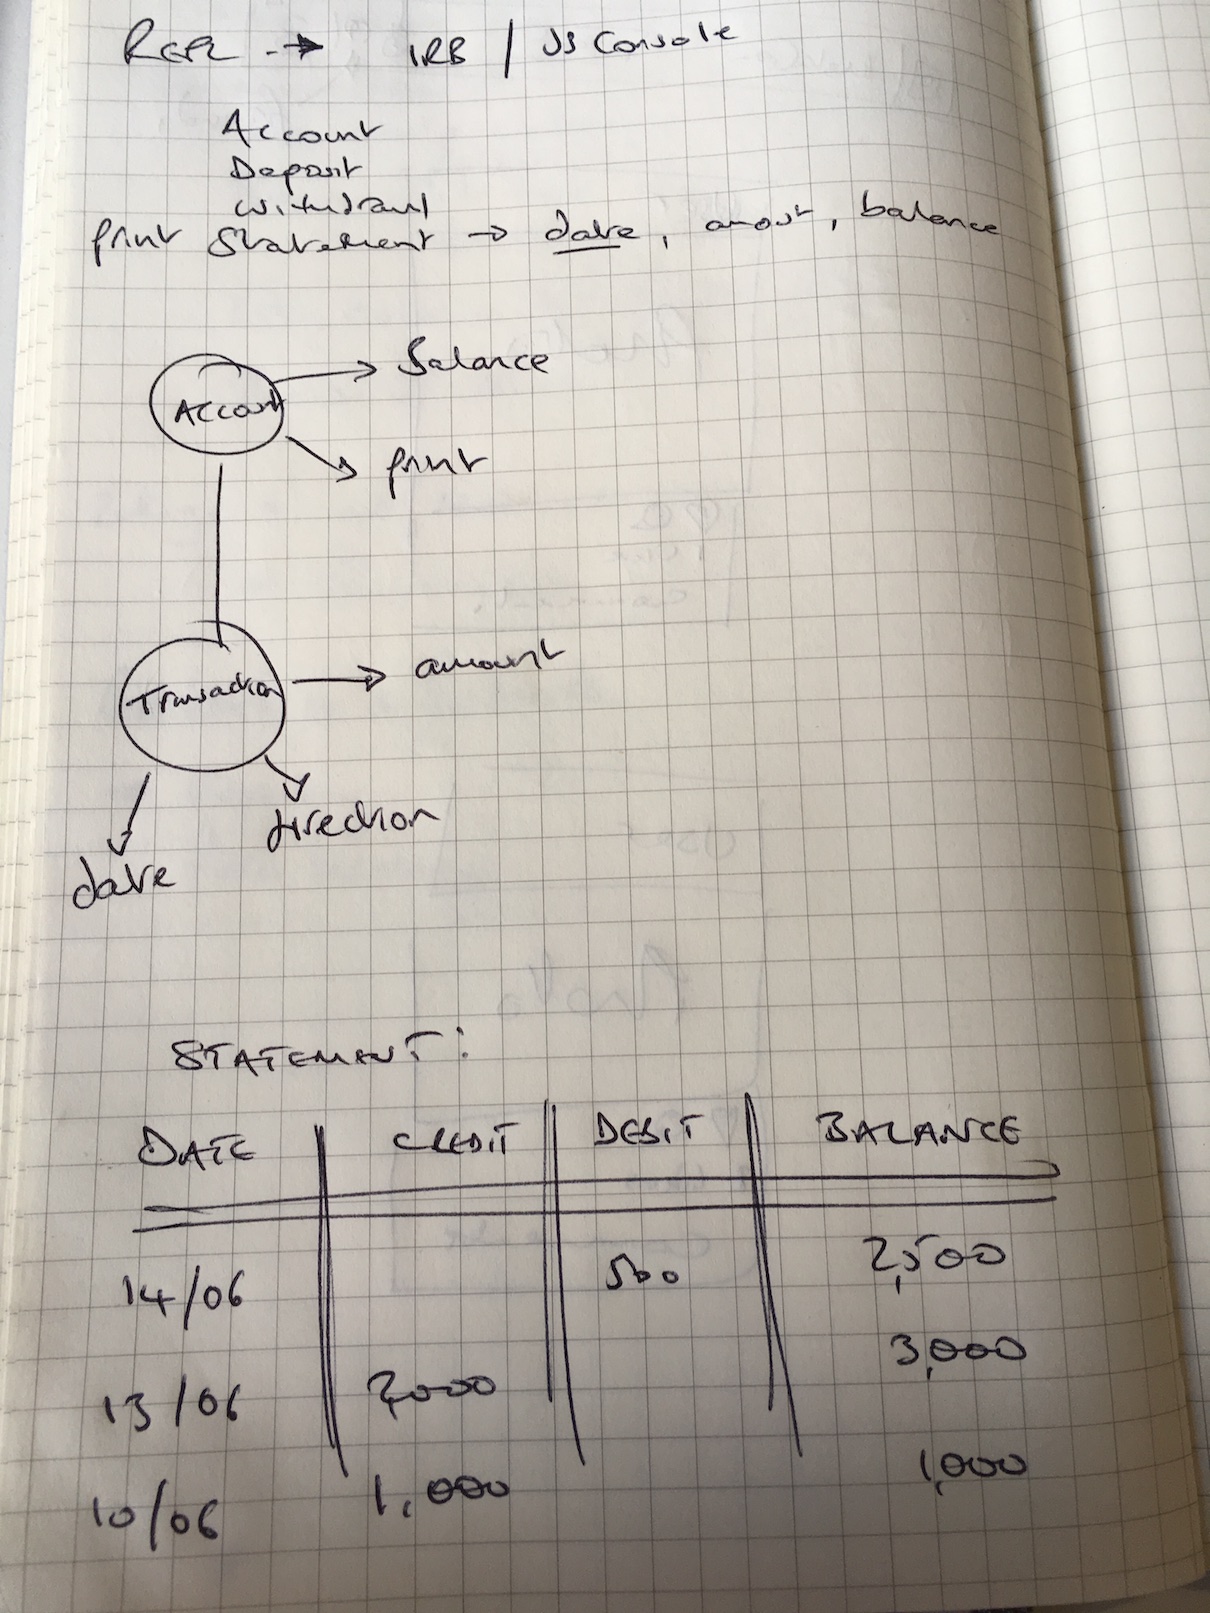 REPL → IRB / JS Console
Account
Deposit
Withdrawl
print Statement → date, amout, balance
Account
Balance
print
Transaction
amount
direction
date
STATEMENT:
DATE CREDIT DEBIT BALANCE
14/06 500 2,500
13/06 2,000 3,000
10/06 1,000 1,000